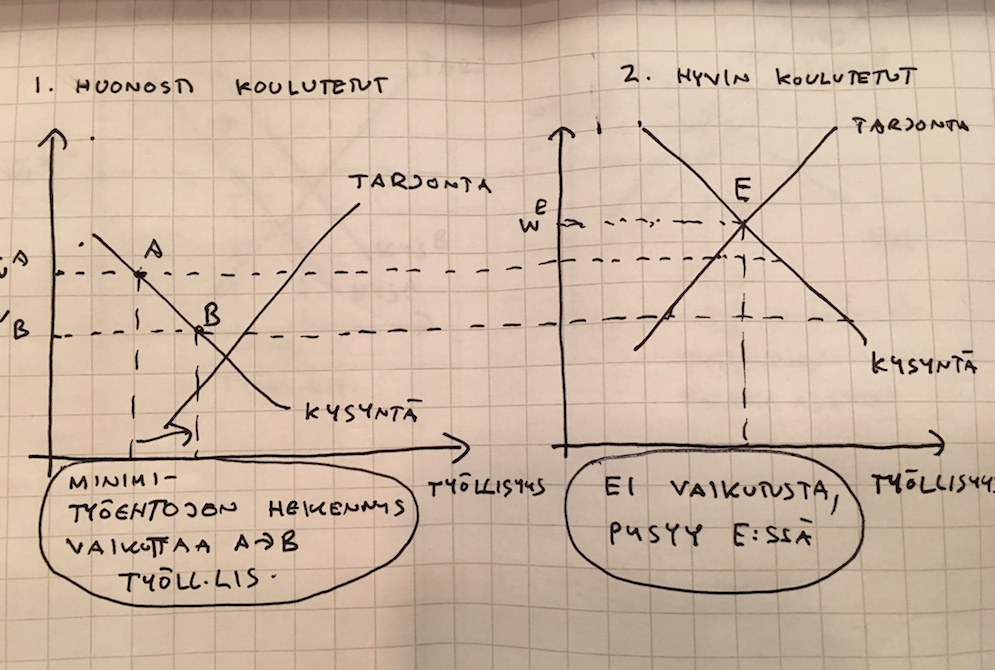 1. HUONOSTI KOULUTETUT
TARJONTA
A
A
B
B
KYSYNTÄ
TYÖLLISYYS
MINIMI-
TYÖEHTOJEN HEIKENNYS
VAIKUTTAA A→B
TYÖLL.LIS.
2. HYVIN KOULUTETUT
TARJONTA
E
W E
KYSYNTÄ
TYÖLLISYYS
EI VAIKUTUSTA,
PYSYY E:SSÄ